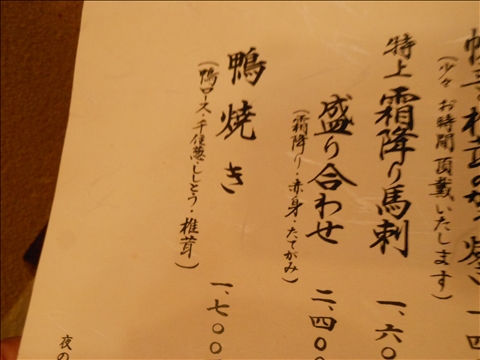 (少々お時間頂戴いたします)
一、四
特上 霜降り馬刺
一、六〇
盛り合わせ
(霜降り・赤身・たてがみ)
二、四〇〇
鴨焼き
(鴨ロース・千住葱・ししとう・椎茸)
一、七〇〇
夜の